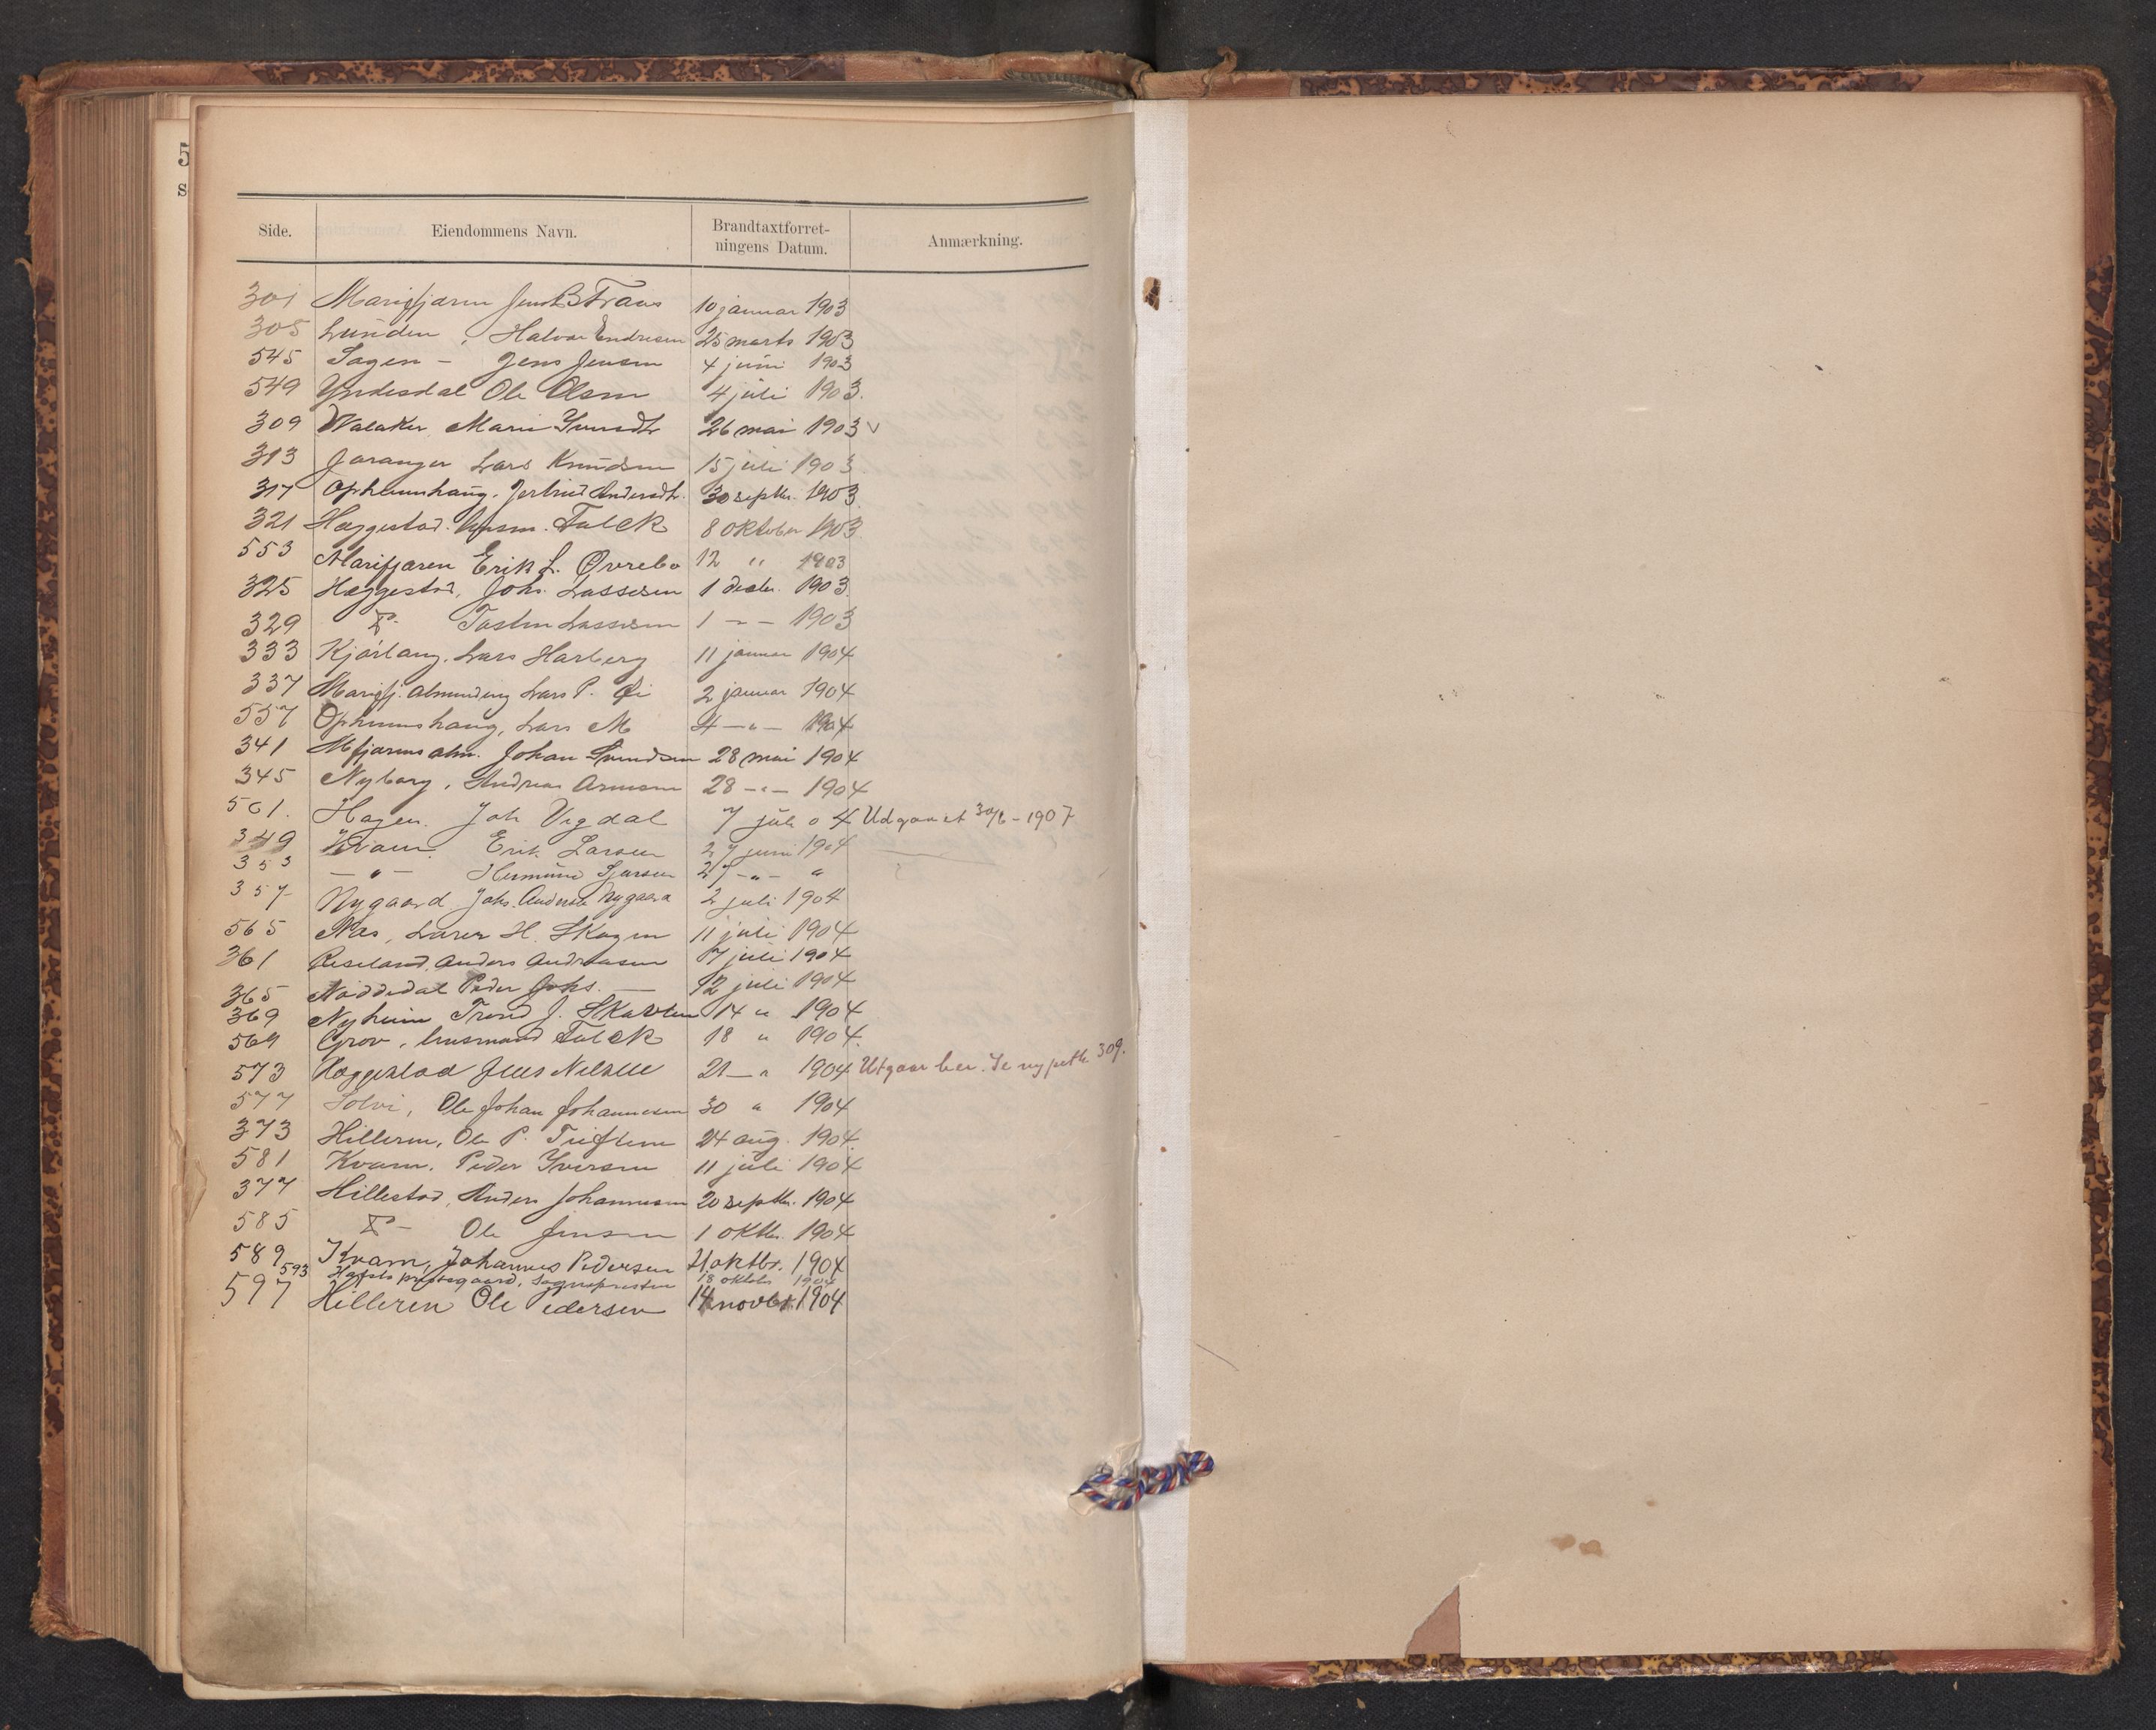 5
S
Side. Eiendommens Navn. Brandtaxtforret-
ningens Datum. Anmærkning.
301 Marifjæren Jens B Traus 10 januar 1903
305 Lunden, Halvor Endresen 25 marts 1903
545 Sagen - Jens Jensen 4 juni 1903
549 Yndesdal Ole Olsen 4 juli 1903.
309 Walaker Mari 26 mai 1903 v
313 Joranger Lars Knudsen 15 juli 1903
317 Opheimshaug. Jertrud Andersdtr. 30 septbr. 1903
321 Hæggestad. Husm. Falck 8 oktober 1903
553 Marifjæren Erik L. Øvrebø 12 " 1903
325 Hæggestad, Johs. Lassesen 1 decbr. 1903
329 Do. Tosten Lassesen 1 - - 1903
333 Kjørlaug, Lars Harberg 11 januar 1904
337 Marifj. Almending Lars P. Øi 2 januar 1904
557 Opheimshaug, Lars M 4 -"- 1904
341 Mfjærens alm. Johan Svendsen 28 mai 1904
345 Nyborg, Andreas 28 -"- 1904
561. Hagen. Joh Vigdal 7 juli 04 Udgaaet 30/6 - 1907
349 Kvam. Erik Larsen 27 juni 1904
353 -"- Hermund Sjursen 27 -"- "
357 Nygaard Johs. Nygaard 2 juli 1904
565 Næs, Lærer H. Skagen 11 juli 1904
361 Anders Andreasen 7 juli 1904
365 Næddedal Peder Johs. - 12 juli 1904
369 Nyheim Trond J. Skarten 14 " 1904
569 Grov, husmand Falck 18 " 1904.
573 Hæggestad Jens Nilsen 21 - " 1904 Utgaar her. Se ny prtk 309.
577 Solvi, Ole Johan Johannesen 30 " 1904
373 Hilleren, Ole P. 24 aug. 1904
581 Kvam, Peder Iversen 11 juli 1904
377 Hillestad, Anders Johannesen 20 septbr. 1904
585 Do - Ole Jensen 1 oktbr. 1904
589 Kvam, Johannes Pedersen 4 oktbr. 1904
593 Hafslo prestegaard, Sognepresten 18 oktobr 1904
597 Hilleren Ole Pedersen 14 novbr 1904